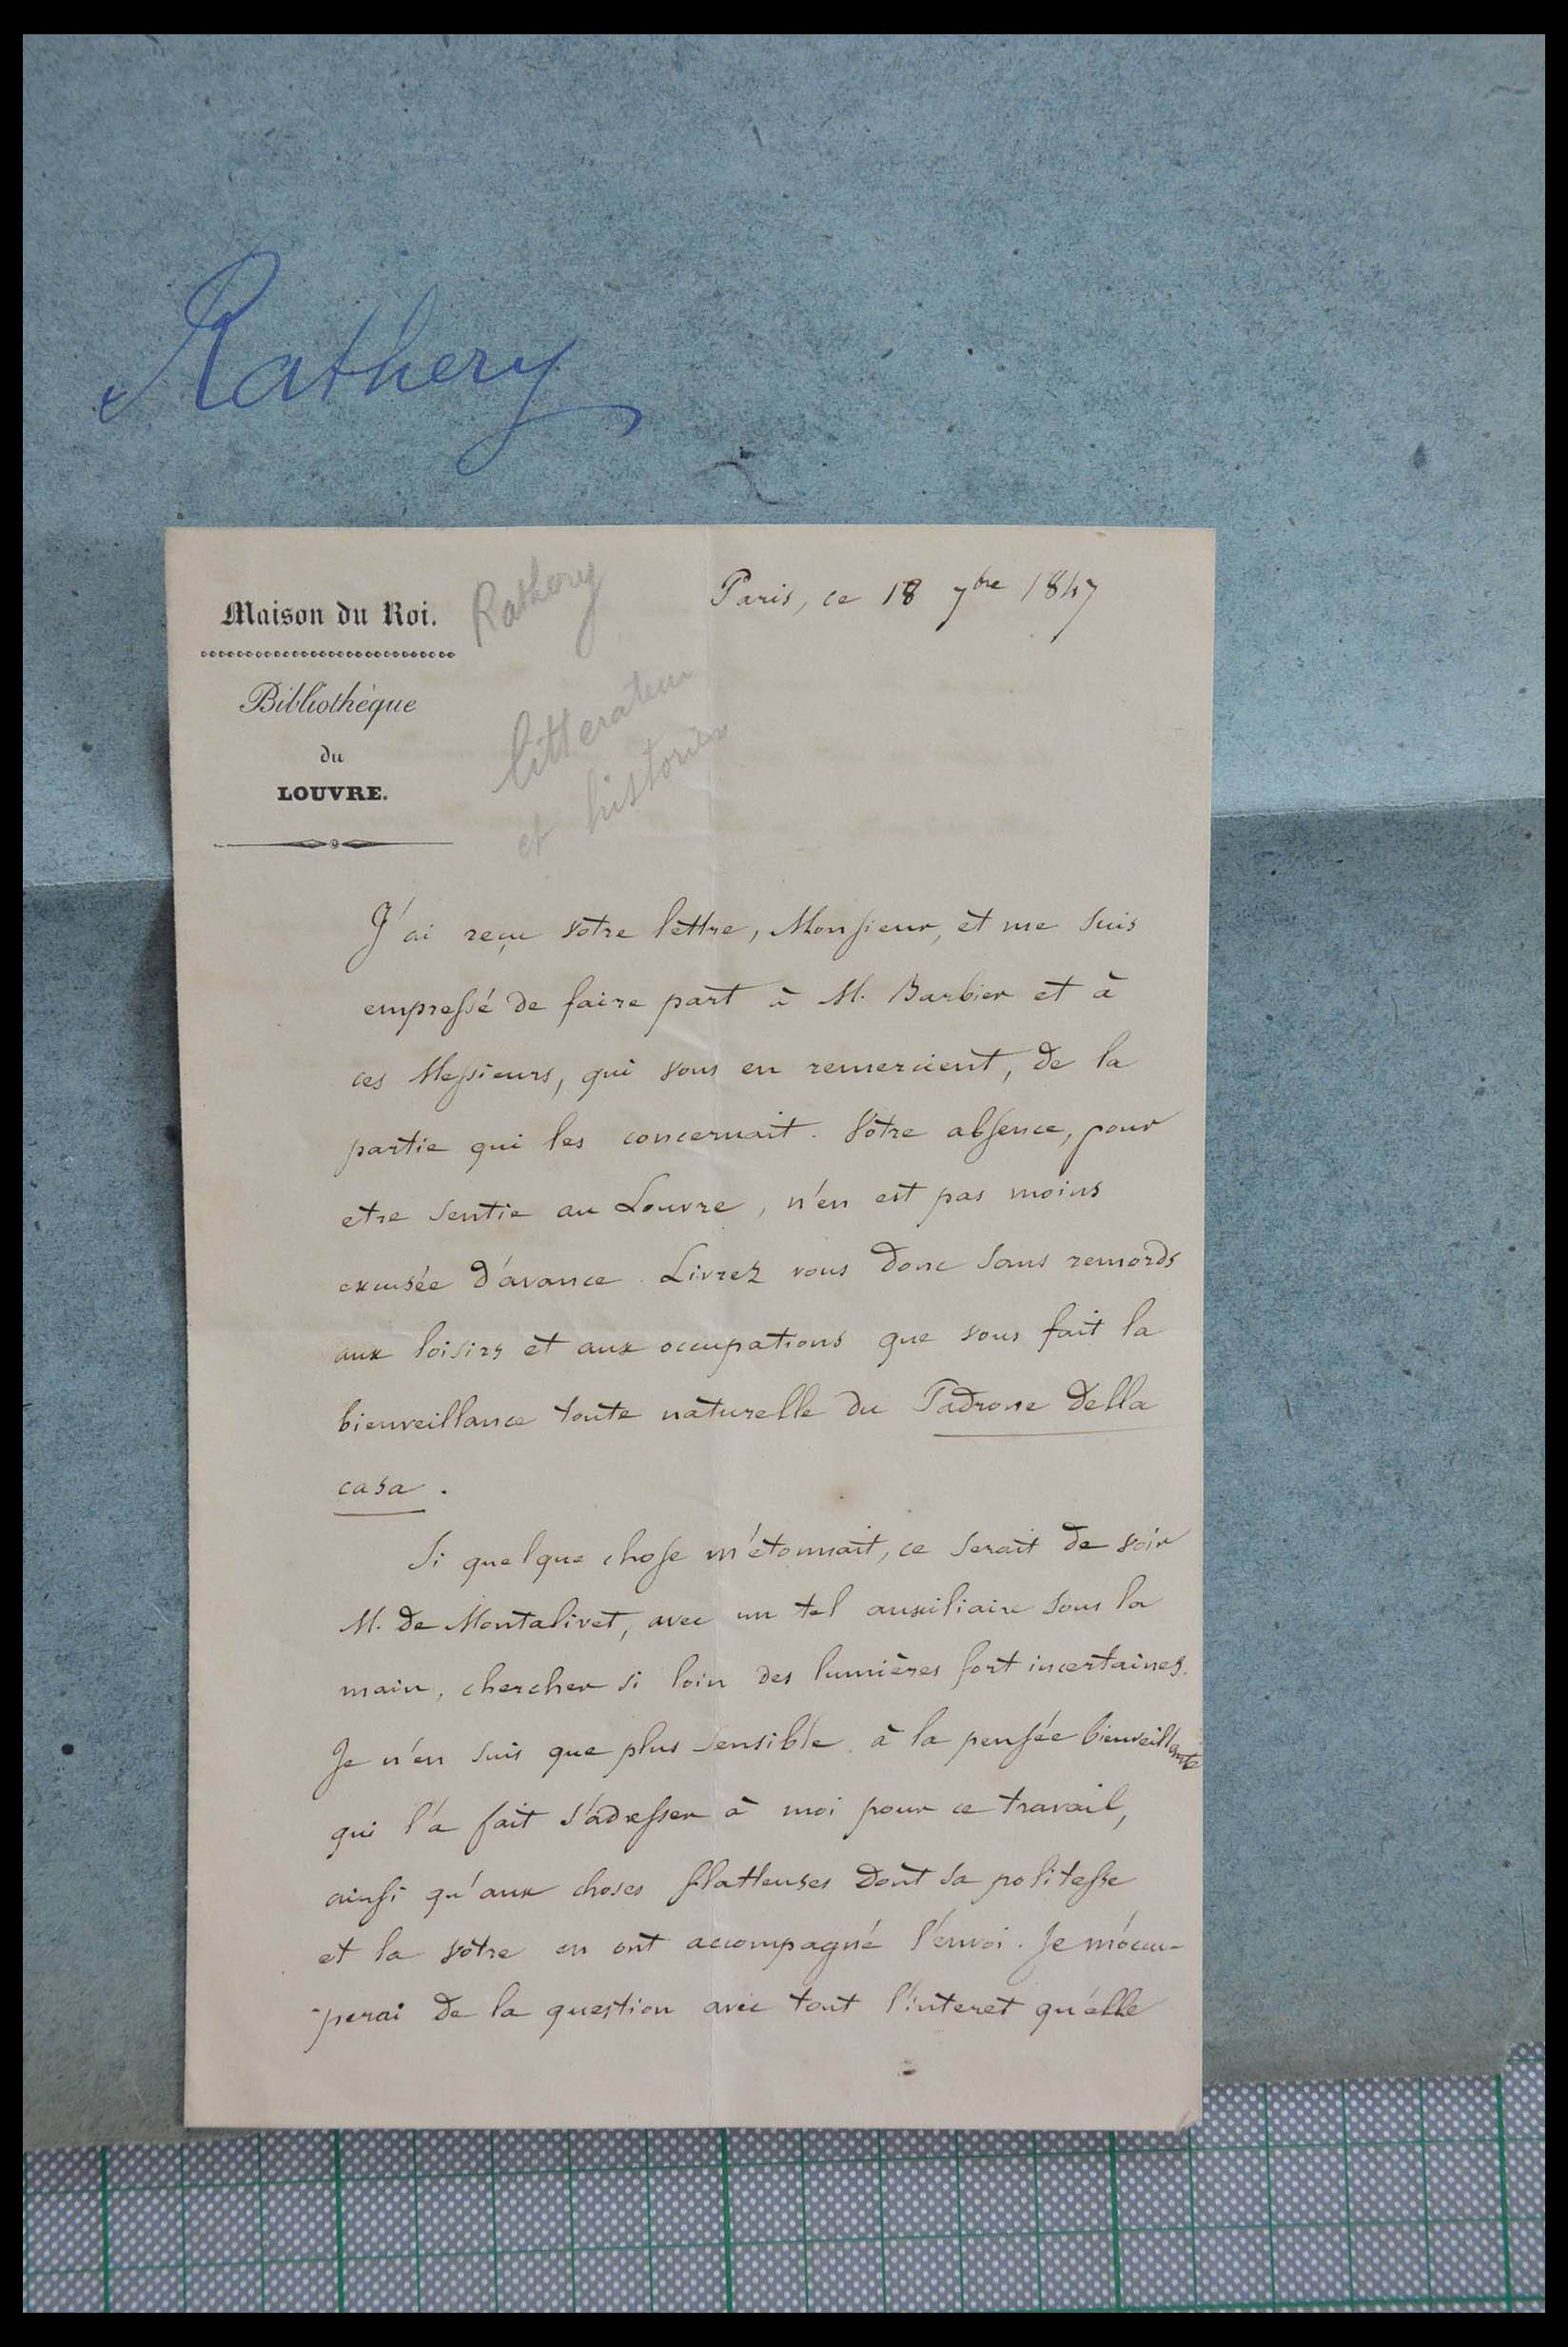 Rathery
Maison du Roi.
Bibliothèque
du
LOUVRE.
Rathery
litterateur
et historien
Paris, ce 18 7bre 1847
J'ai reçu votre lettre, Monsieur, et me suis
empressé de faire part à M. Barbier et à
ces Messieurs, qui vous en remercient, de la
partie qui les concernait. Votre absence, pour
etre sentie au Louvre, n'en est pas moins
excusée d'avance. Livrez vous donc sans remords
aux loisirs et aux occupations que vous fait la
bienveillance toute naturelle du Padrone della
casa.
Si quelque chose m'étonnait, ce serait de voir
M. de Montalivet, avec un tel auxiliaire sous la
main, chercher si loin des lumières fort incertaines.
Je n'en suis que plus sensible à la pensée bienveillante
qui l'a fait s'adresser à moi pour ce travail,
ainsi qu'aux choses flatteuses dont sa politesse
et la vôtre en ont accompagné l'envoi. Je m'occu-
-perai de la question avec tout l'interet qu'elle